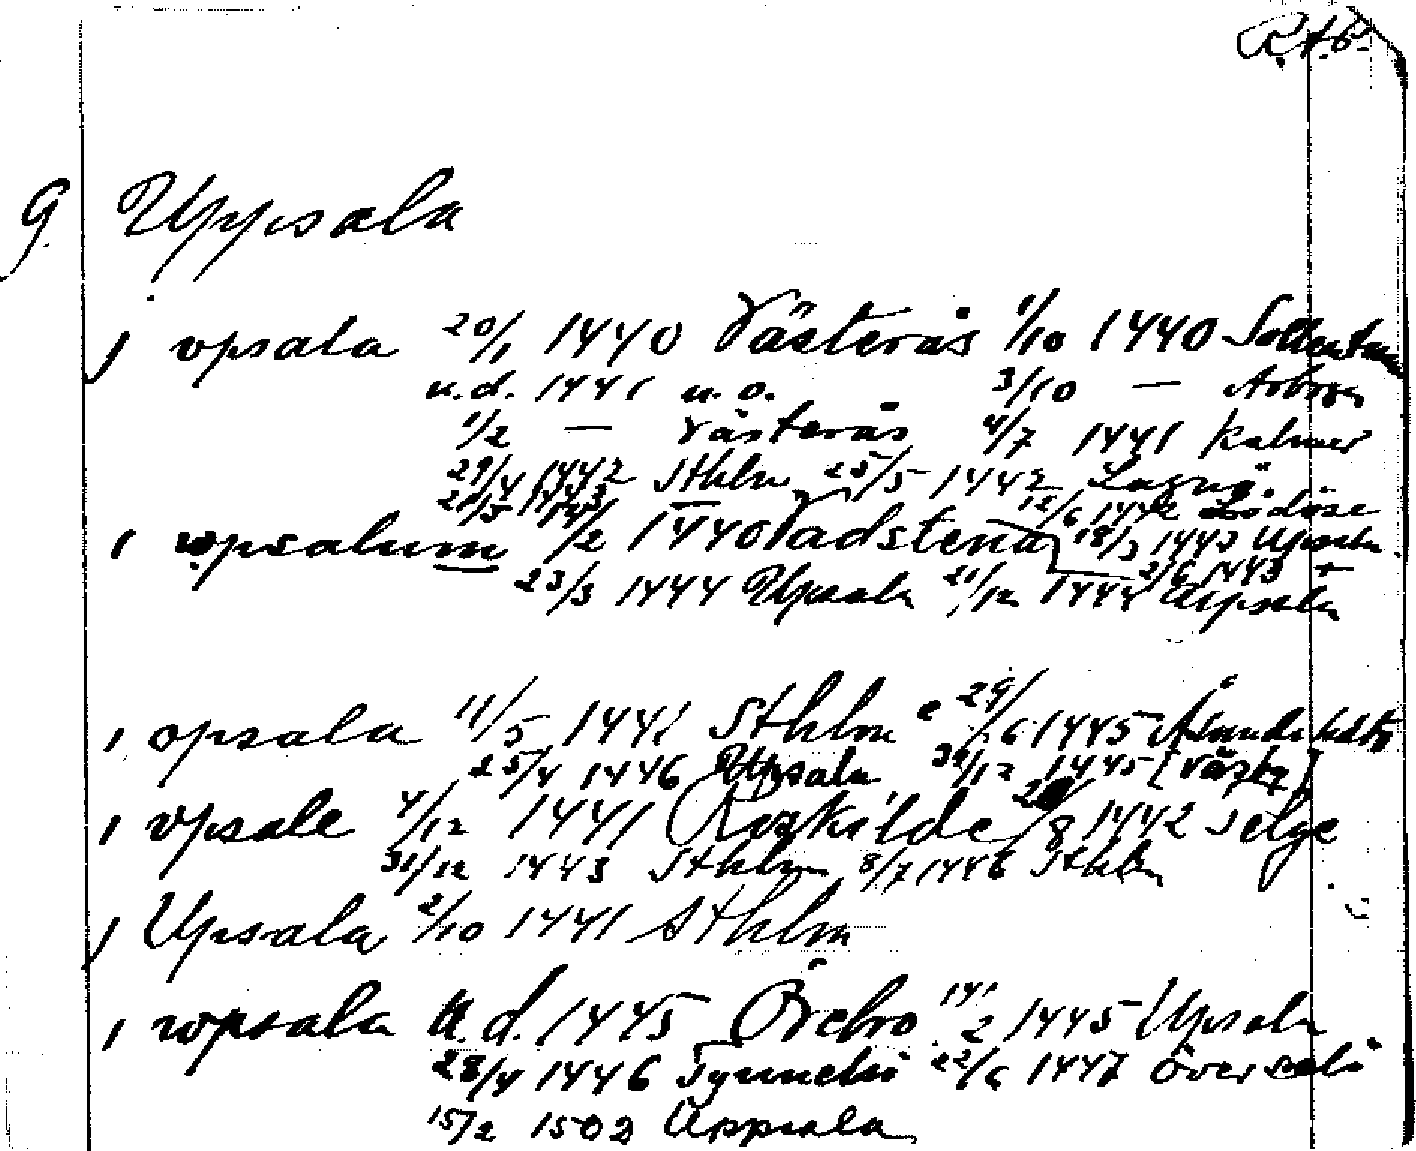 R.A.6.
9. Uppsala
j vpsala 20/1 1440 Västerås 1/10 1440 Sollentuna
u.d. 1441 u.o. 3/10 — Arboga
1/2 — Västerås 4/7 1441 Kalmar
29/4 1442 Sthlm 25/5 1442 Lagnö
12/6 1442 Lödöse
i wpsalum 1/2 1440 Vadstena 18/3 1443 Upsala
2/6 1443 +
23/3 1444 Upsala 21/12 1444 Upsala
i opsala 11/5 1441 Sthlm e 29/6 1445
25/4 1446 Upsala 30/12 1445
i vpsale 4/12 1441 Roskilde /8 1442 Selge
31/12 1443 Sthlm 8/7 1446 Sthlm
j Upsala 2/10 1441 Sthlm
i wpsala u.d. 1445 Örebro 14/2 1445 Upsala
28/4 1446 Tynnelsö 22/6 1447 Överselö
15/2 1502 Uppsala